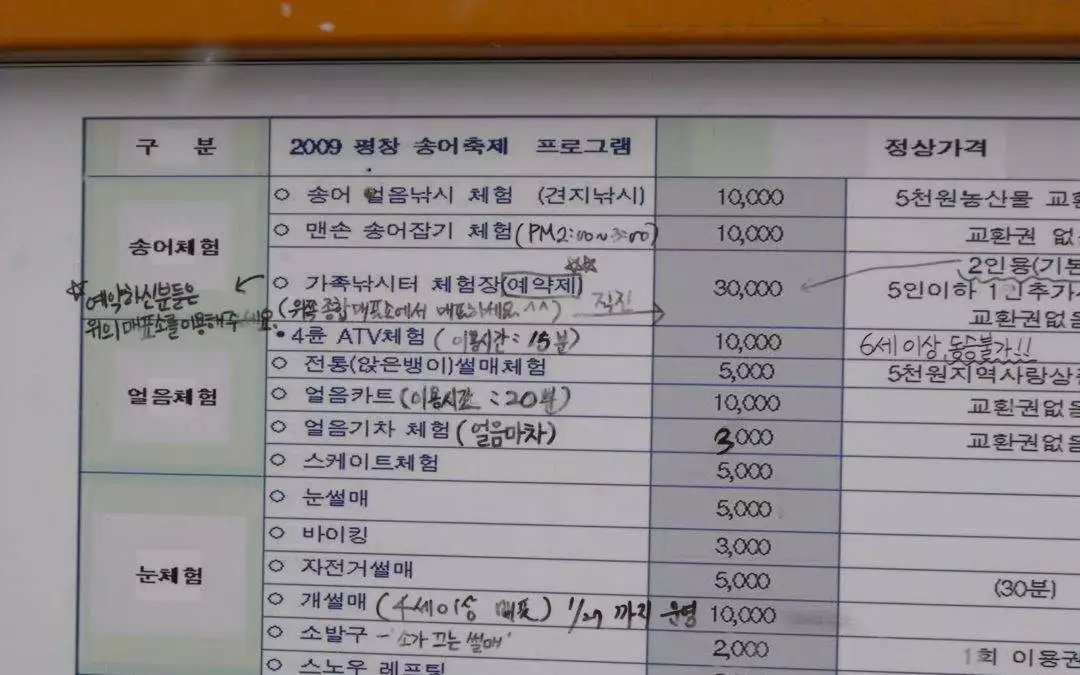 구 분 2009 평창 송어축제 프로그램 정상가격
송어체험
○ 송어 얼음낚시 체험 (견지낚시) 10,000 5천원농산물 교환
○ 맨손 송어잡기 체험(PM2:00~3:00) 10,000 교환권 없
○ 가족낚시터 체험장(예약제) 30,000 2인용(기본
(위쪽 종합매표소에서 매표하세요.^^) 직진 5인이하 1인추가시
교환권없음
☆예약하신분들은
위의 매표소를 이용해주세요.
얼음체험
• 4륜 ATV체험 (이용시간: 15분) 10,000 6세 이상, 동승불가!!
○ 전통(앉은뱅이)썰매체험 5,000 5천원지역사랑상품
○ 얼음카트(이용시간 :20분) 10,000 교환권없음
○ 얼음기차 체험(얼음마차) 3,000 교환권없음
○ 스케이트체험 5,000
눈체험
○ 눈썰매 5,000
○ 바이킹 3,000
○ 자전거썰매 5,000 (30분)
○ 개썰매 (4세이상 매표) 1/29 까지 운영 10,000
○ 소발구 - '소가 끄는 썰매' 2,000 1회 이용권
○ 스노우 레프팅